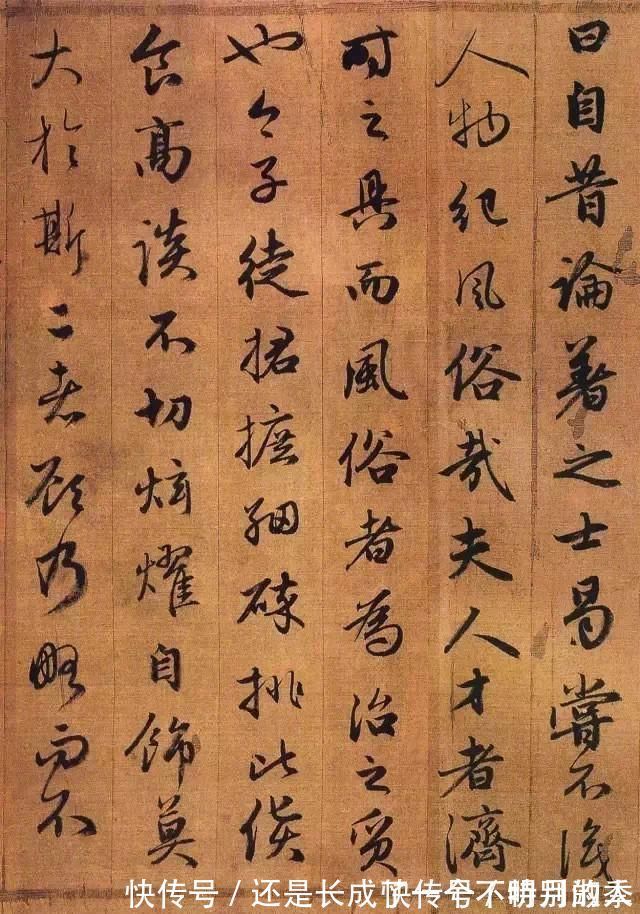 曰自昔論著之士曷嘗不識
人物紀風俗哉夫人才者濟
時之具而風俗者為治之質
也今子徒捃摭細碎排比
食高談不切炫耀自飾莫
大於斯二者顧乃略而不
快传号 / 还是长成快传号